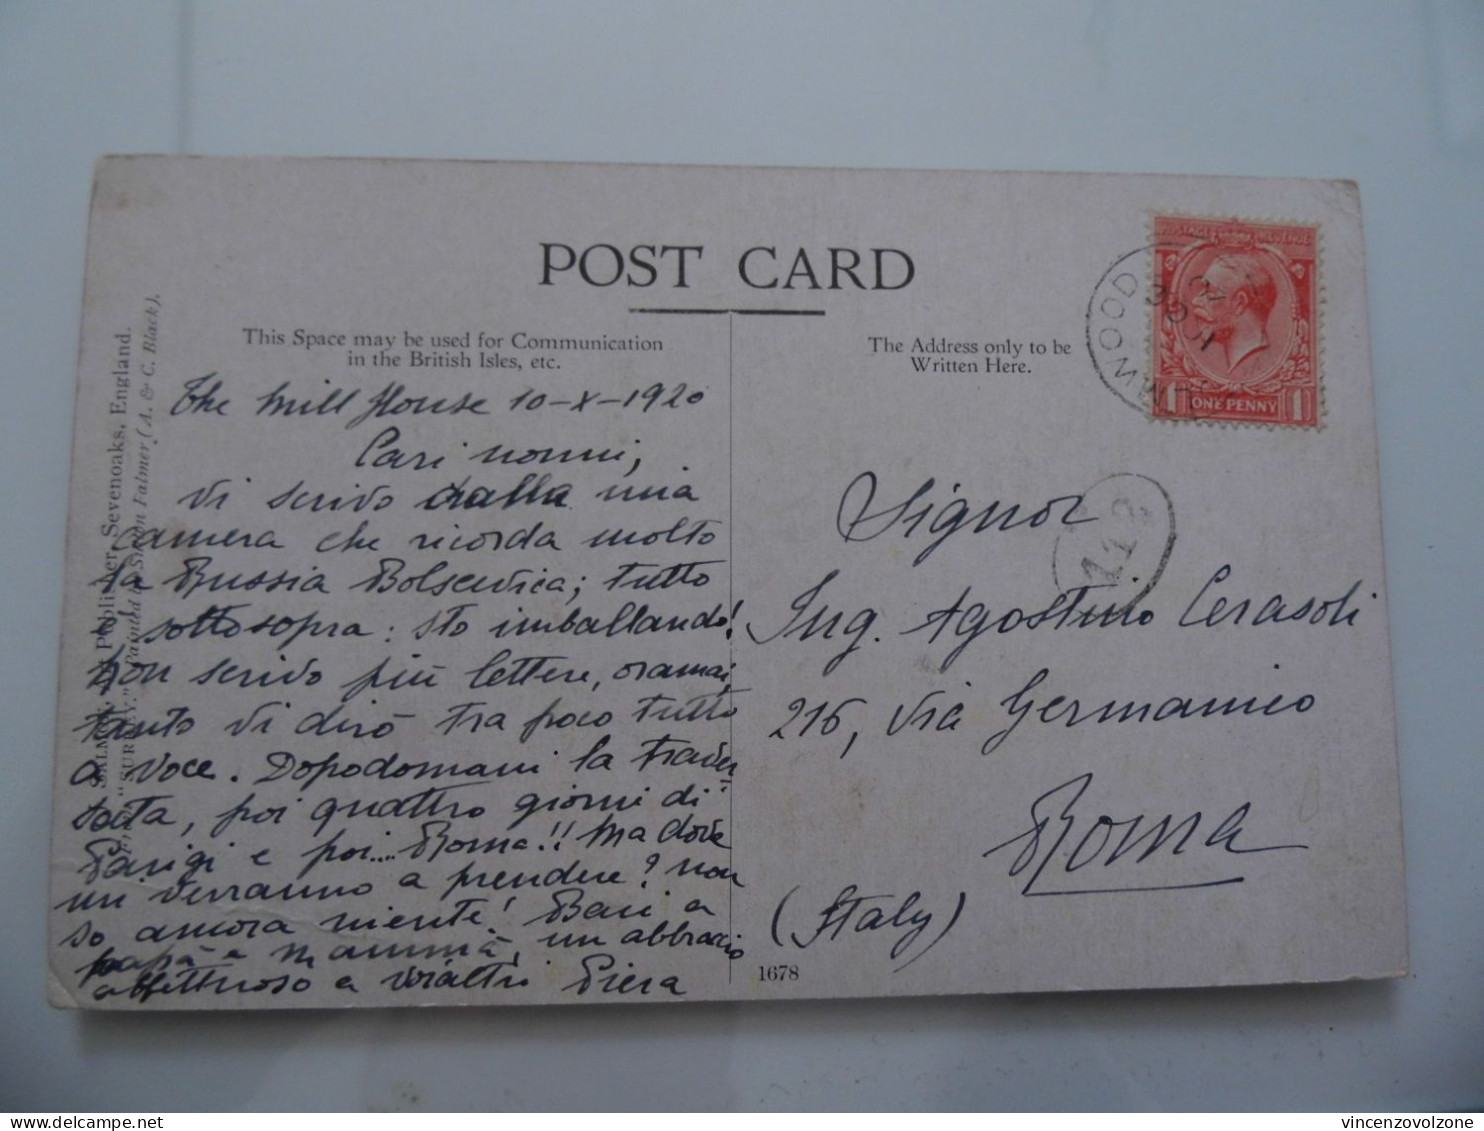 POST CARD
This Space may be used for Communication
in the British Isles, etc.
The Address only to be
Written Here.
The Mill House 10-X-1920
Cari nonni,
vi scrivo dalla mia
camera che ricorda molto
la Russia Bolscevica; tutto
sottosopra: sto imballando!
Non scrivo più lettere, oramai,
tanto vi dirò tra poco tutto
a voce. Dopodomani la traver
sata, poi quattro giorni di
Parigi e poi.... Roma!! Ma dove
mi verranno a prendere? non
so ancora niente! Baci a
papà e mammà, un abbraccio
affettuoso a voialtri Piera
Signor
Ing. Agostino Cerasoli
216, Via Germanico
Roma
(Italy)
1678
POSTAGE REVENUE
1 ONE PENNY 1
WOOD
112
Publisher, Sevenoaks, England.
"SURREY." Painted by Sutton Palmer (A. & C. Black).
vincenzovolzone